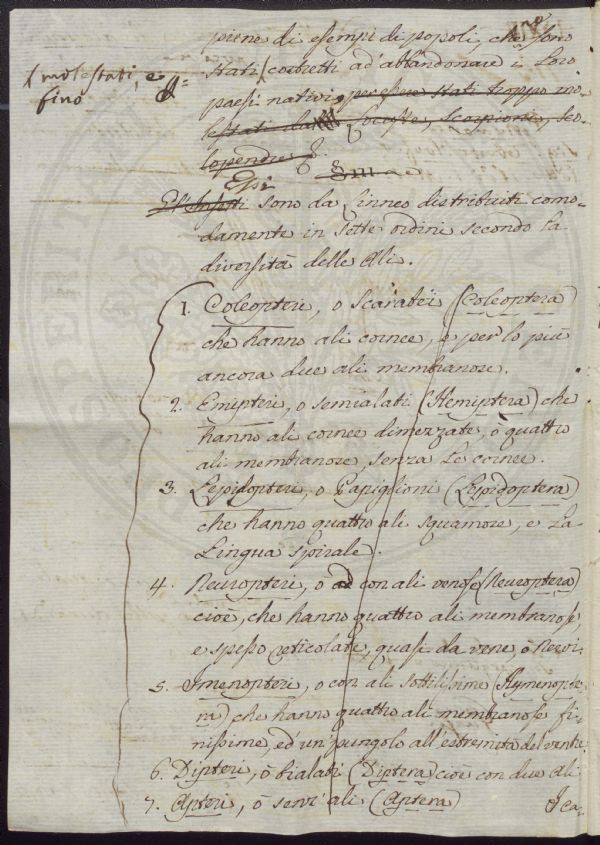 piene di esempi di popoli, che sono
( molestati, e
fino
stati ( costretti ad' abbandonare i Loro
paesi nativi, per essere stati troppo mo=
lestati dalle Locuste, Scorpioni, Sco
lopendre
Essi
Gl'Insetti sono da Linneo distribuiti como=
damente in sette ordini secondo la
diversità delle Ali.
1. Coleopteri, o Scarabei (Coleoptera)
che hanno ali cornee, e per lo più
ancora due ali membranose.
2. Emipteri, o semialati (Hemiptera) che
hanno ali cornee dimezzate, o quattro
ali membranose, senza le cornee.
3. Lepidopteri, o Papiglioni (Lepidoptera)
che hanno quattro ali squamose, e La
Lingua spirale.
4. Neuropteri, o con ali venose (Neuroptera)
cioè, che hanno quattro ali membranose,
e spesso reticolate, quasi da vene, o Nervi.
5. Imenopteri, o con ali sottilissime (Hymenopte
ra) che hanno quattro ali membranose fi=
nissime, ed' un' pungolo all' estremità del ventre
6. Dipteri, ò bialati (Diptera) cioè con due Ali
7. Apteri, ò senz' ali (Aptera)